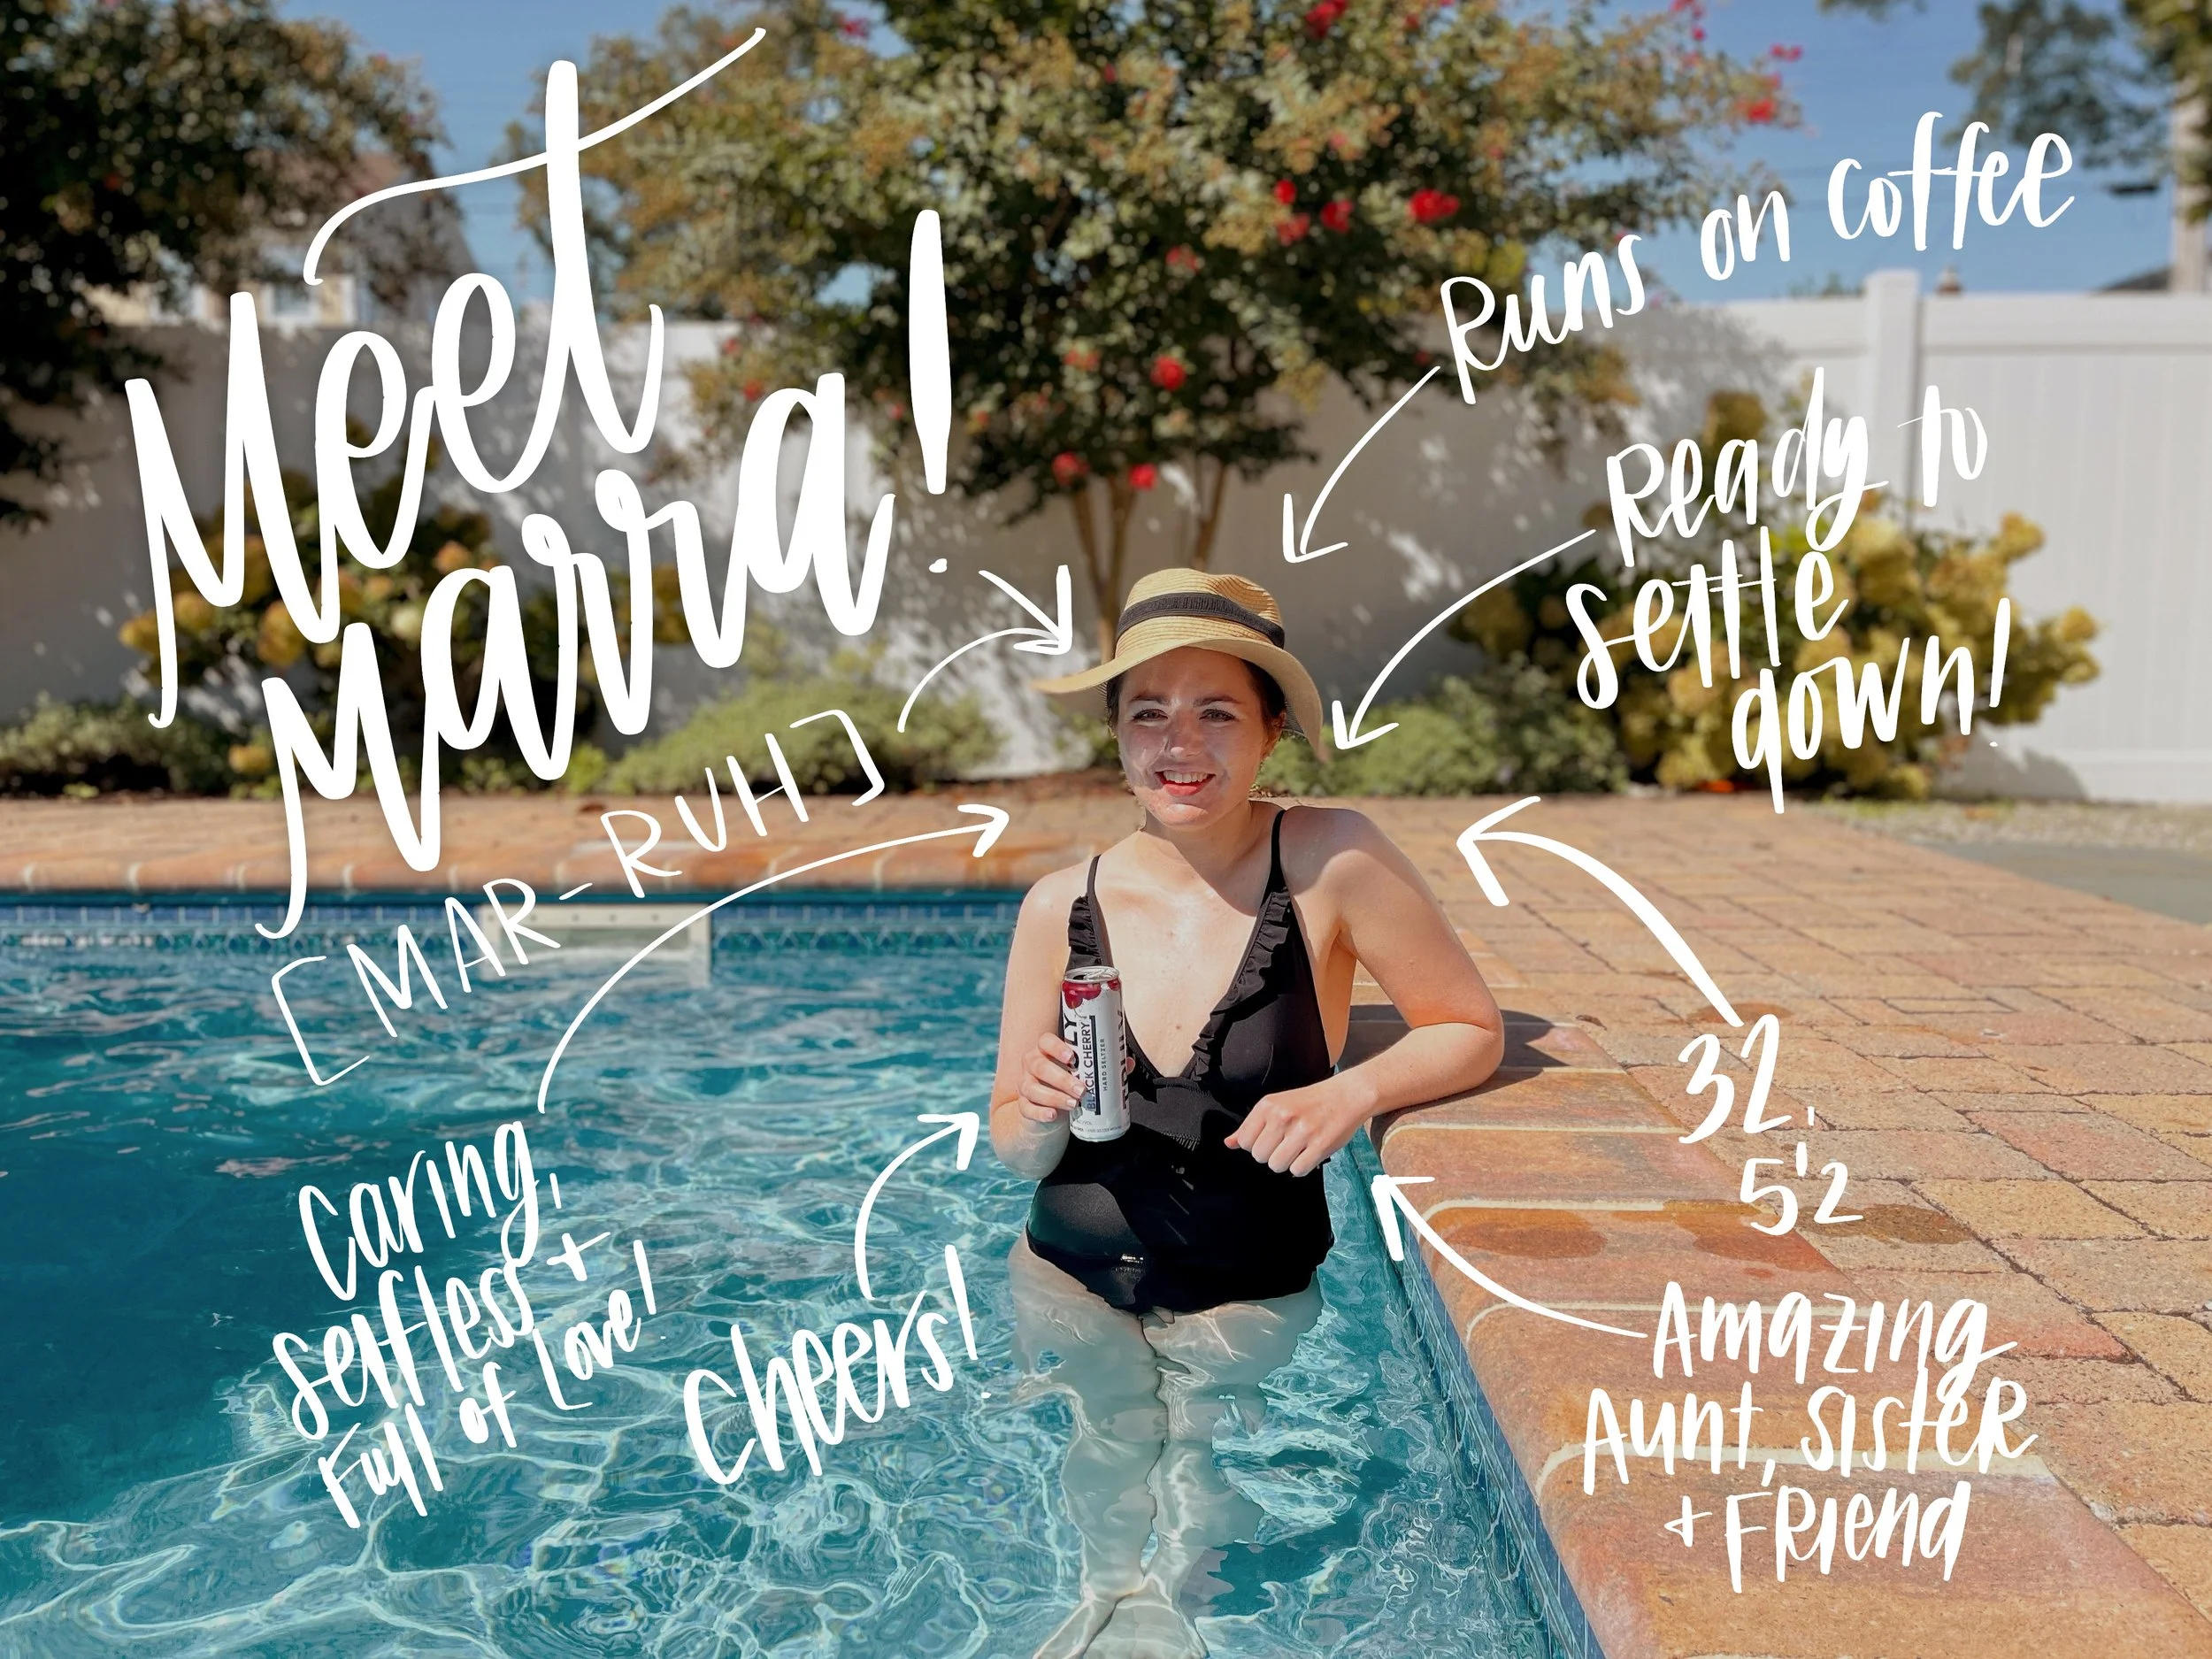 Meet
Marra!
[MAR-RUH]
Runs on coffee
Ready to
settle
down!
Caring,
selfless +
Full of Love!
Cheers!
32,
5'2
Amazing
Aunt, sister
+ Friend
BLACK CHERRY
HARD SELTZER